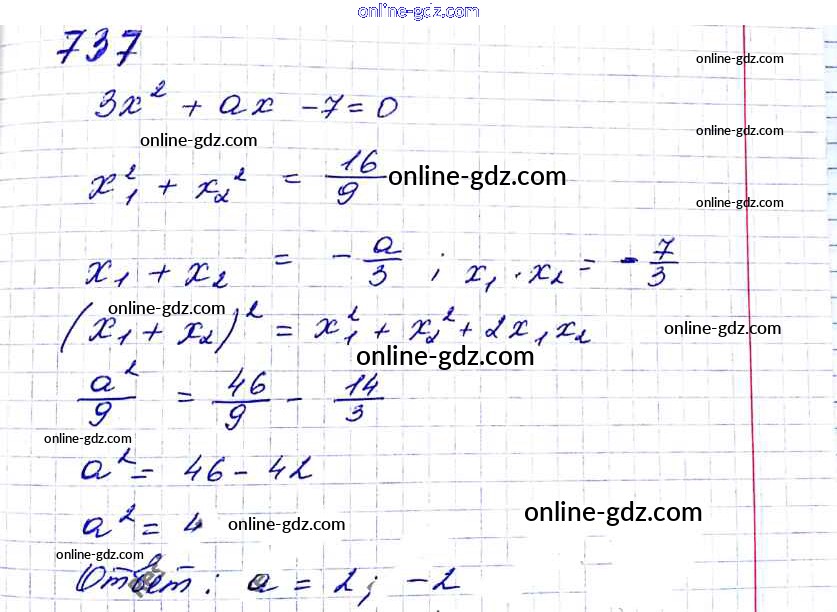 online-gdz.com
737
online-gdz.com
3x² + ax - 7 = 0
online-gdz.com
online-gdz.com
x₁² + x₂² = 16/9
online-gdz.com
online-gdz.com
x₁ + x₂ = - a/3 ; x₁ · x₂ = - 7/3
online-gdz.com
(x₁ + x₂)² = x₁² + x₂² + 2x₁x₂
online-gdz.com
online-gdz.com
a²/9 = 46/9 - 14/3
online-gdz.com
a² = 46 - 42
a² = 4
online-gdz.com
online-gdz.com
online-gdz.com
Ответ: a = 2; -2